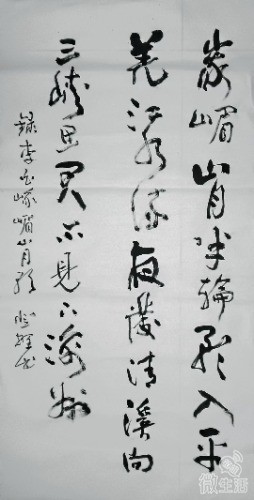 峨嵋山月半輪入平
羌江水流夜發清溪向
三峽思君不見下渝州
錄李白峨嵋山月歌 书
微生活